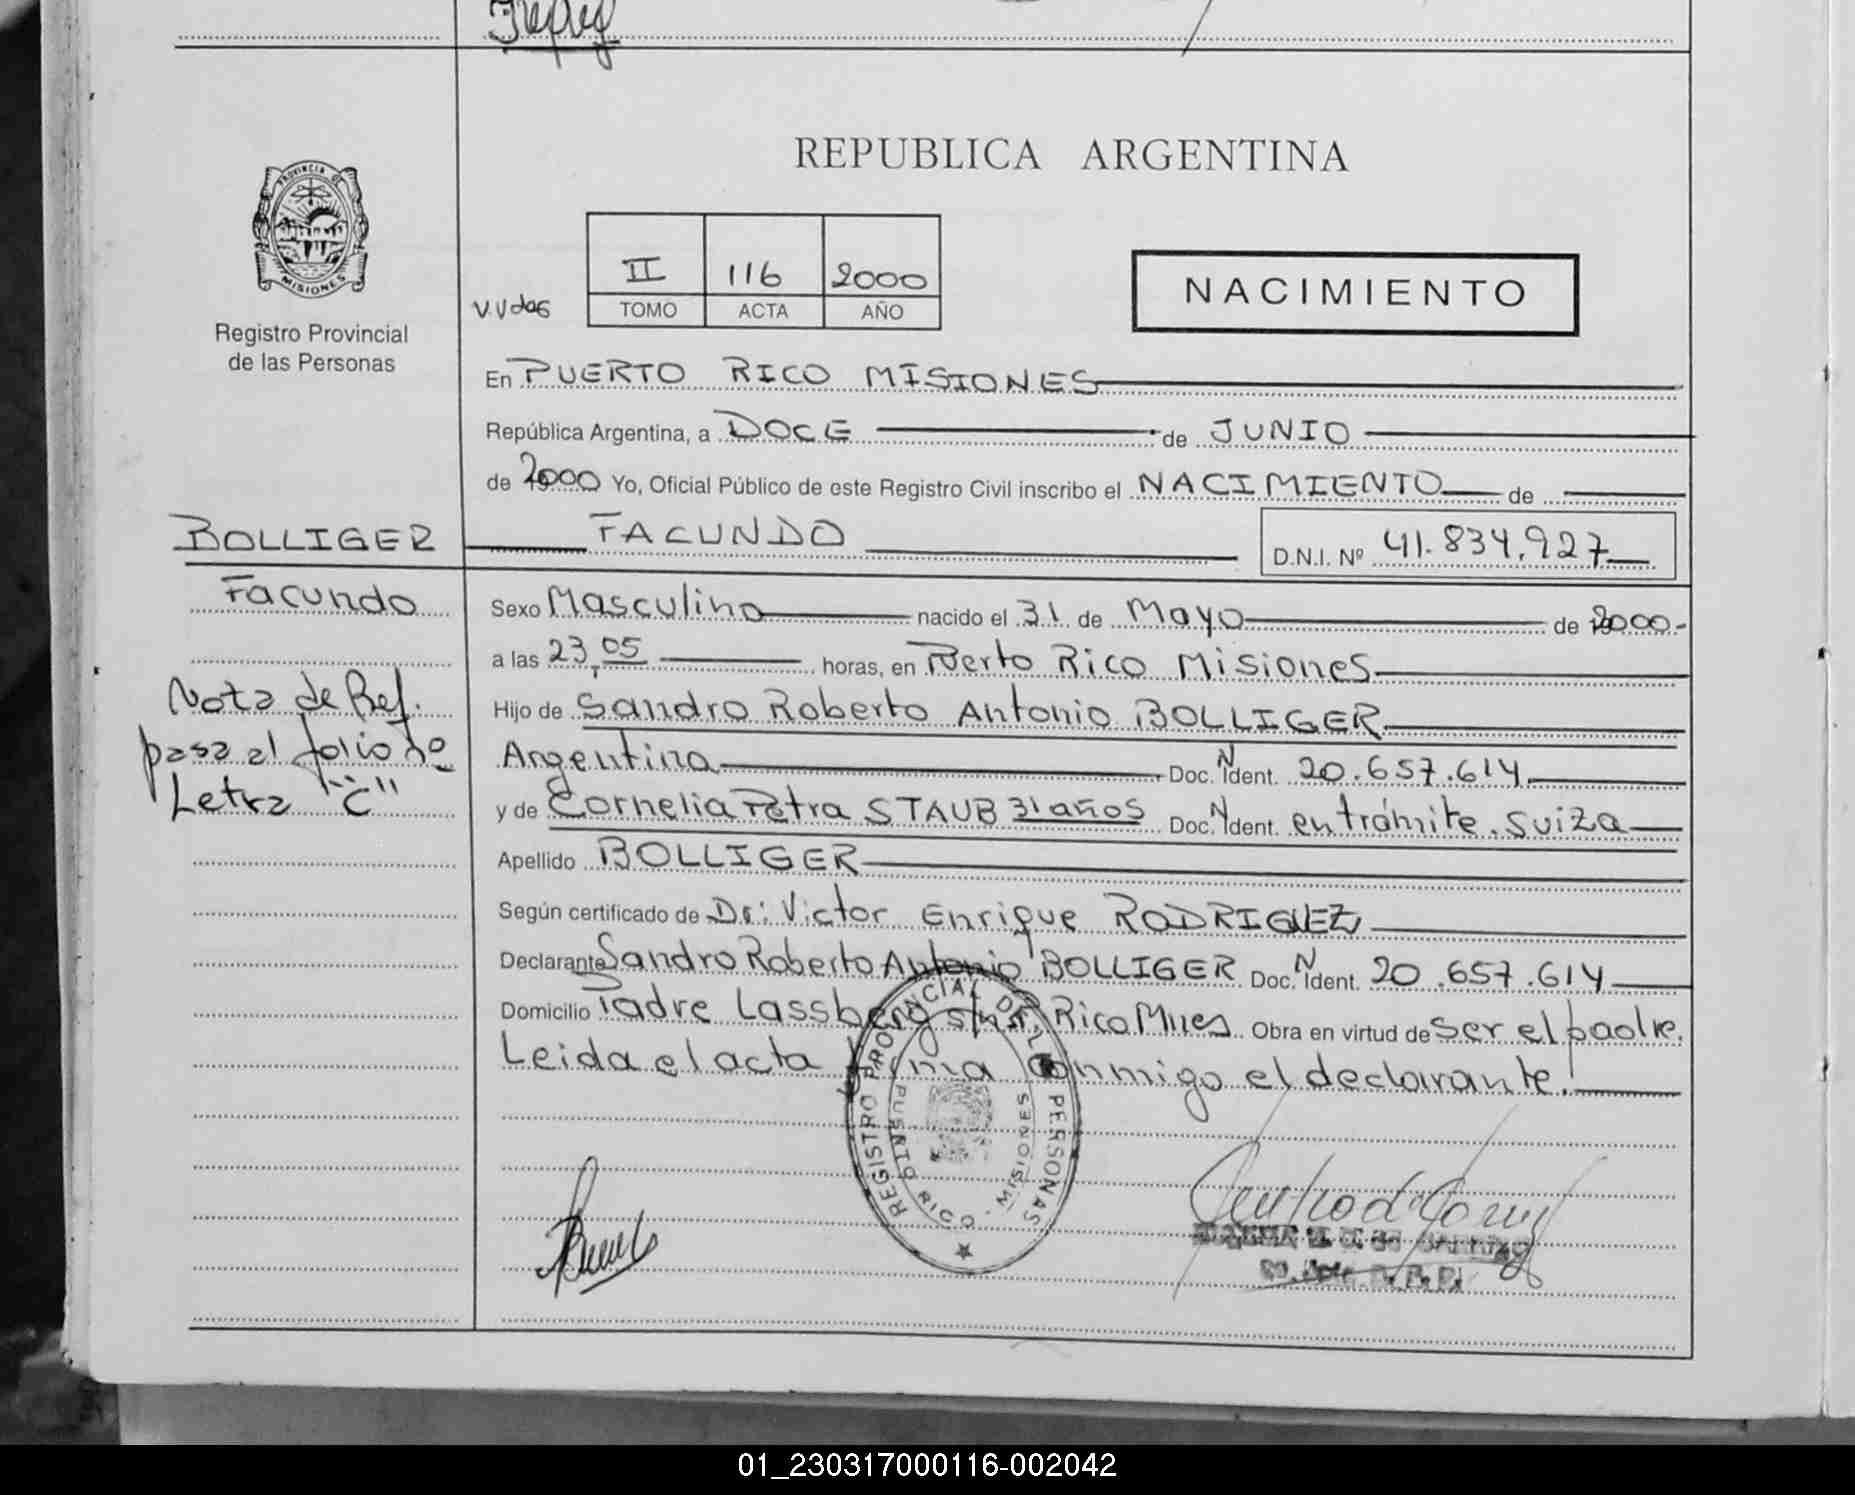 REPUBLICA ARGENTINA
PROVINCIA DE
MISIONES
Registro Provincial
de las Personas
II 116 2000
TOMO ACTA AÑO
NACIMIENTO
En PUERTO RICO MISIONES
República Argentina, a DOCE de JUNIO
de 2000 Yo, Oficial Público de este Registro Civil inscribo el NACIMIENTO de
BOLLIGER FACUNDO D.N.I. Nº 41.834.927
Facundo
Sexo Masculino nacido el 31 de Mayo de 2000.-
a las 23,05 horas, en Puerto Rico Misiones
Nota de Ref.
pasa al folio no
Letra "C"
Hijo de Sandro Roberto Antonio BOLLIGER
Argentina Doc. N Ident. 20.657.614
y de Cornelia Petra STAUB 31 años Doc. N Ident. en trámite. Suiza
Apellido BOLLIGER
Según certificado de Dr: Victor Enrique RODRIGUEZ
Declarante Sandro Roberto Antonio BOLLIGER Doc. N Ident. 20.657.614
Domicilio Padre Lassberg s/n P. Rico Mnes Obra en virtud de ser el padre.
Leida el acta firma conmigo el declarante.
REGISTRO PROVINCIAL DE L PERSONAS
PUERTO RICO - MISIONES
01_230317000116-002042